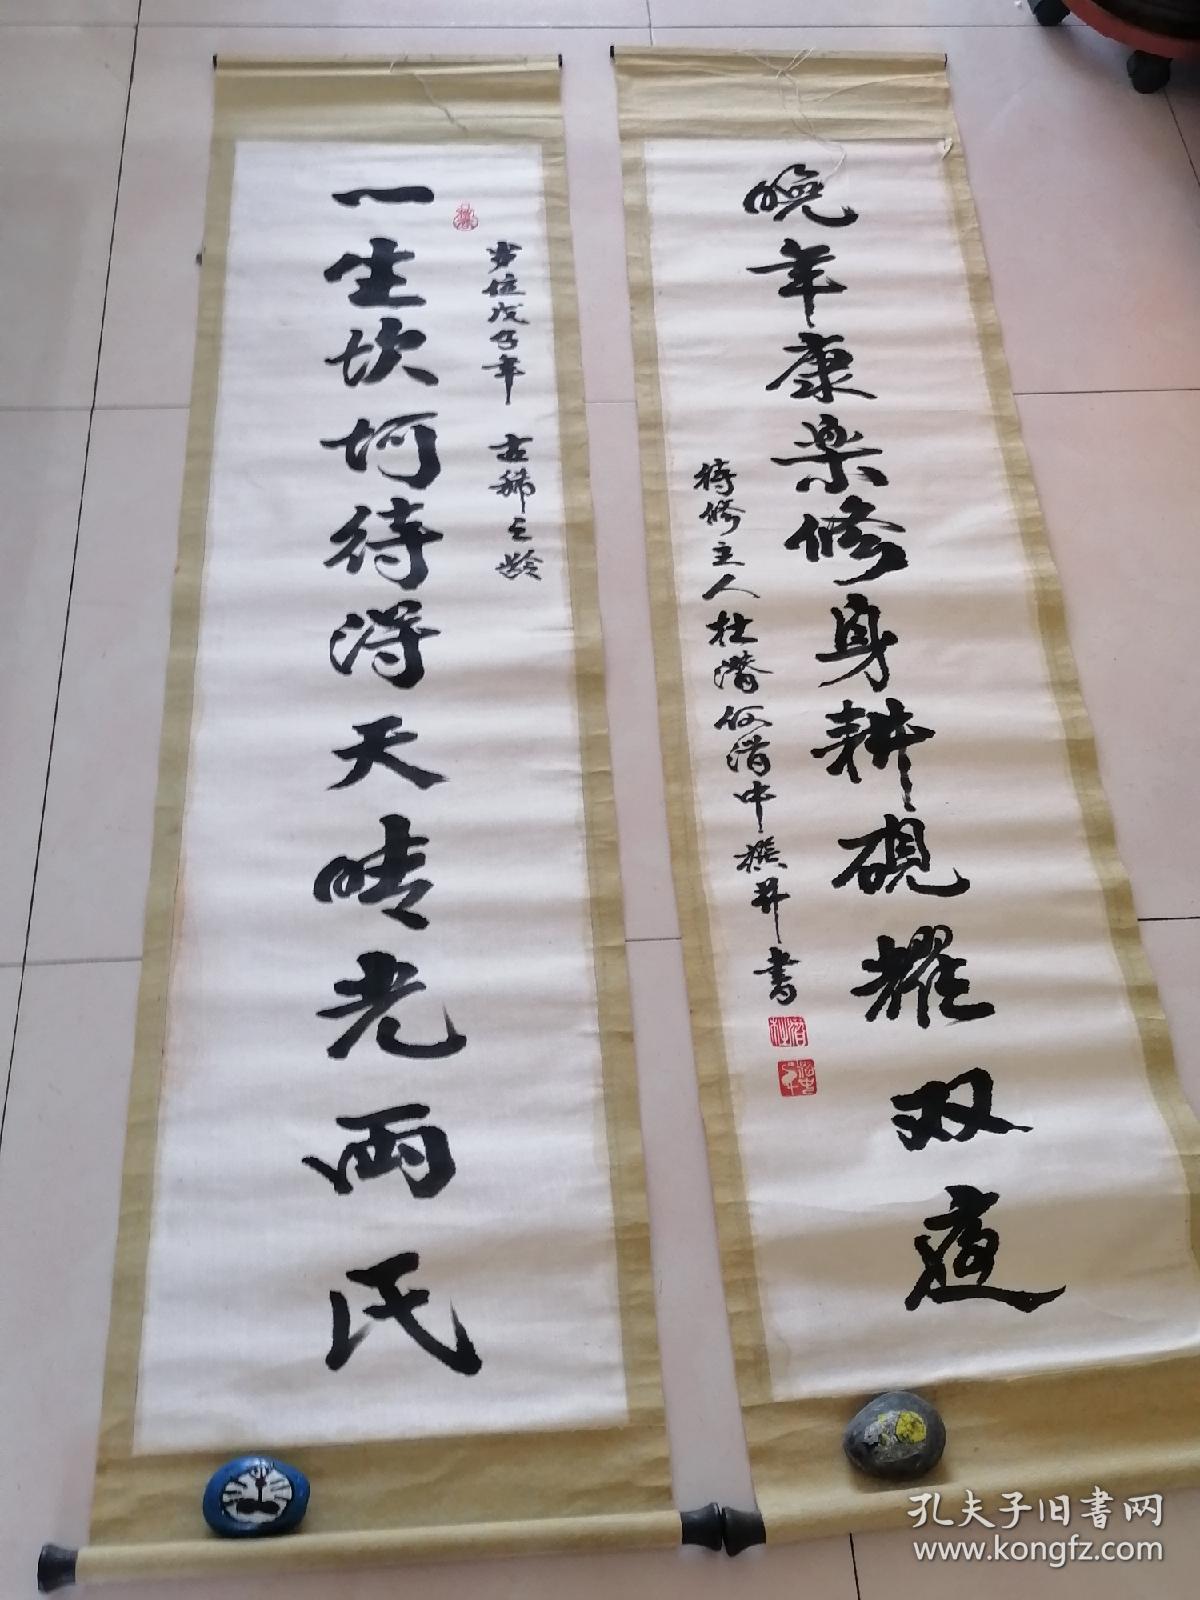 一生坎坷待得天晴光兩民
岁位戊子年 古稀之龄
晚年康乐修身耕砚耀双庭
待修主人杜潜 撰并书
孔夫子旧书网
www.kongfz.com